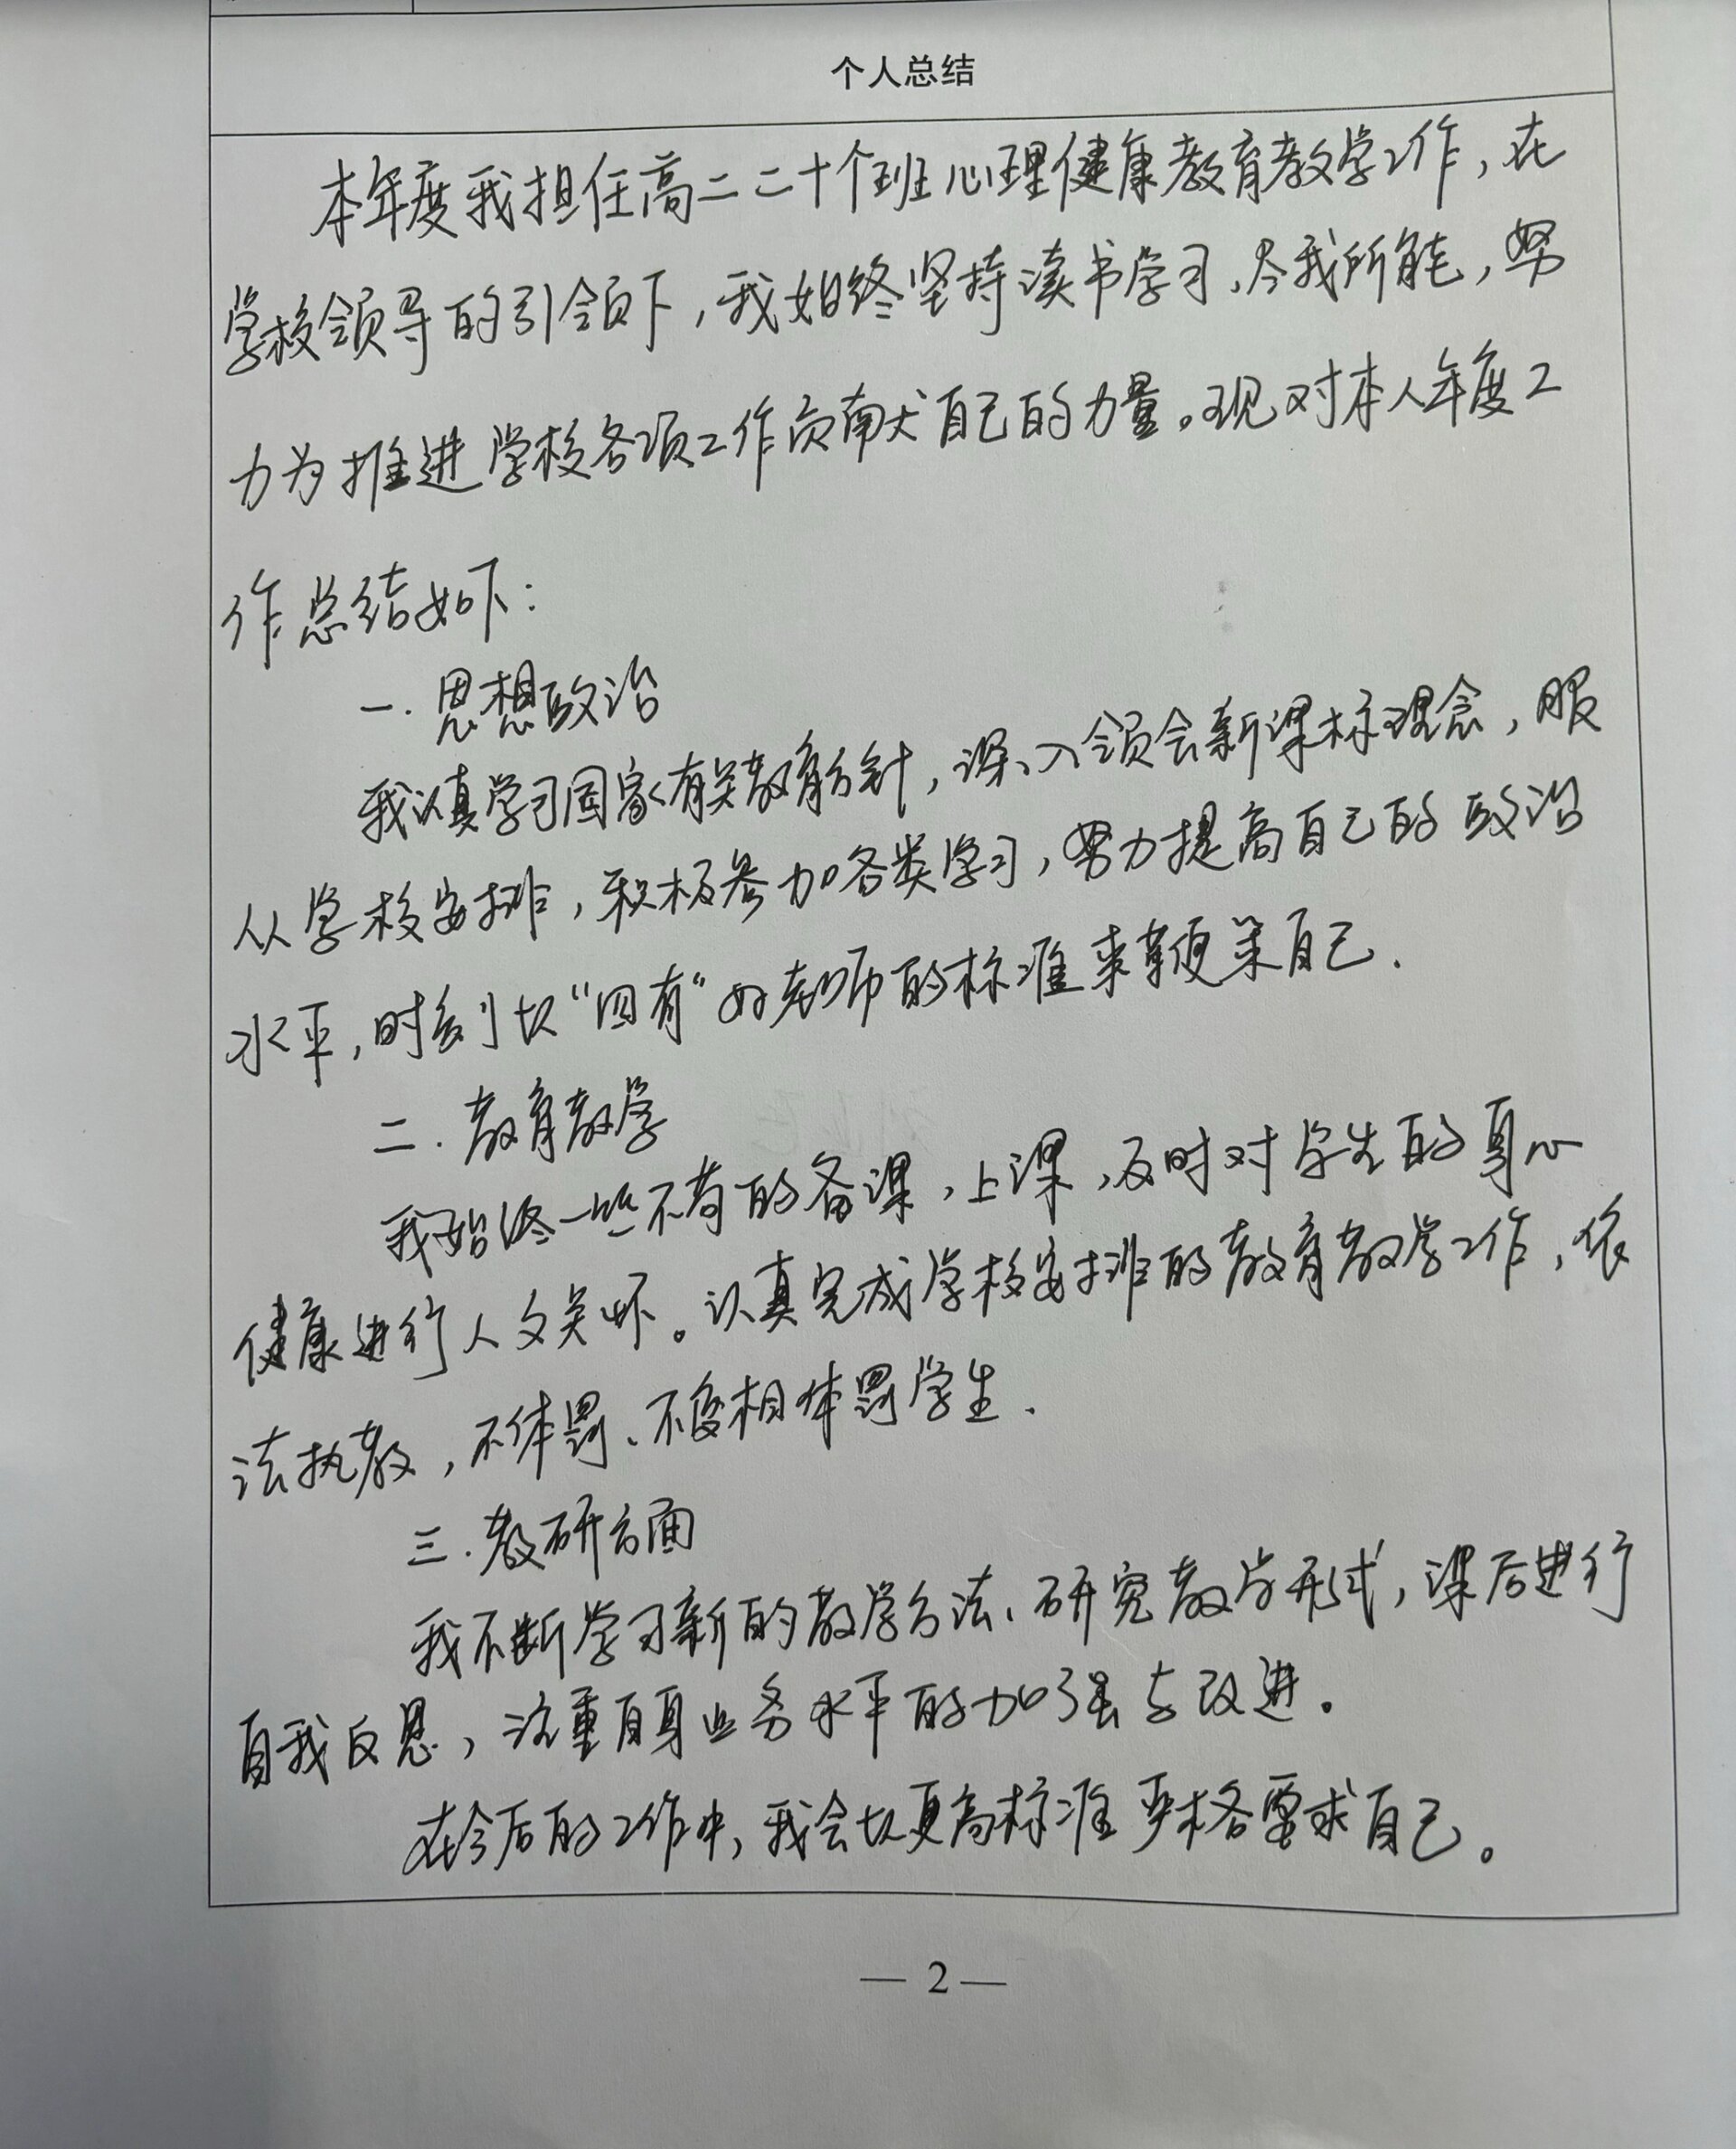 个人总结
本年度我担任高二二十个班心理健康教育教学工作，在
学校领导的引领下，我始终坚持读书学习，尽我所能，努
力为推进学校各项工作贡献自己的力量。现对本人年度工
作总结如下：
一.思想政治
我认真学习国家有关教育方针，深入领会新课标理念，服
从学校安排，积极参加各类学习，努力提高自己的政治
水平，时刻以“四有”好老师的标准来鞭策自己.
二.教育教学
我始终一丝不苟的备课，上课，及时对学生的身心
健康进行人文关怀。认真完成学校安排的教育教学工作，依
法执教，不体罚、不变相体罚学生.
三.教研方面
我不断学习新的教学方法、研究教学形式，课后进行
自我反思，注重自身业务水平的加强与改进。
在今后的工作中，我会以更高标准严格要求自己。
— 2 —